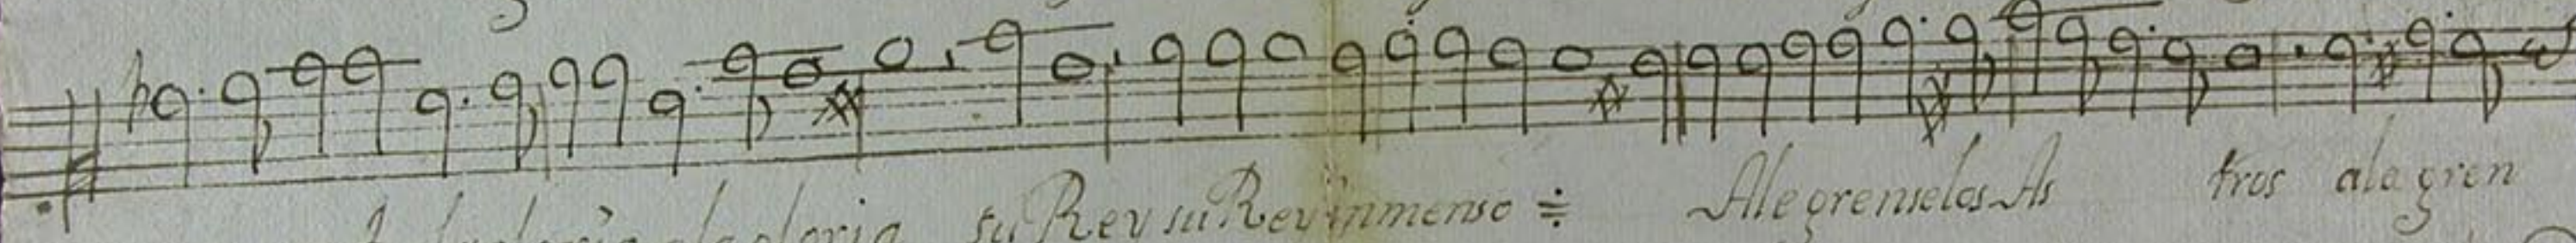 su Rey su Rey inmenso ≑ Alegrenselos As tros alegren